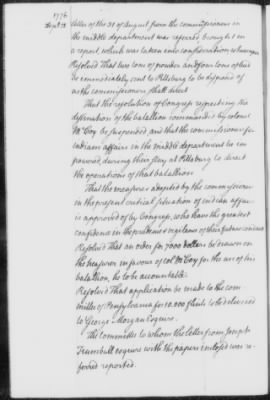 1776
Septr 11
letter of the 31 of August from the commissioners in
the middle department was referred brought in
a report which was taken into consideration whereupon
Resolved That two tons of powder and four tons of lead
be immediately sent to Pittsburg to be disposed of
as the commissioners shall direct
That the resolution of Congress respecting the
destination of the battalion commanded by colonel
McCoy be suspended and that the commissioners for
indian affairs in the middle department be em
powered, during their stay at Pittsburg to direct
the operations of that battalion
That the measures adopted by the commissioners
in the present critical situation of indian affairs
is approved of by Congress, who have the greatest
confidence in the prudence & vigilance of their future conduct
Resolved That an order for 7000 dollars be drawn on
the treasurer in favour of col McCoy for the use of his
battalion, he to be accountable
Resolved That application be made to the com
mittee of Pensylvania for 10,000 flints to be delivered
to George Morgan Esquire.
The committee to whom the letter from Joseph
Trumbull esquire with the papers inclosed was re
ferred reported.